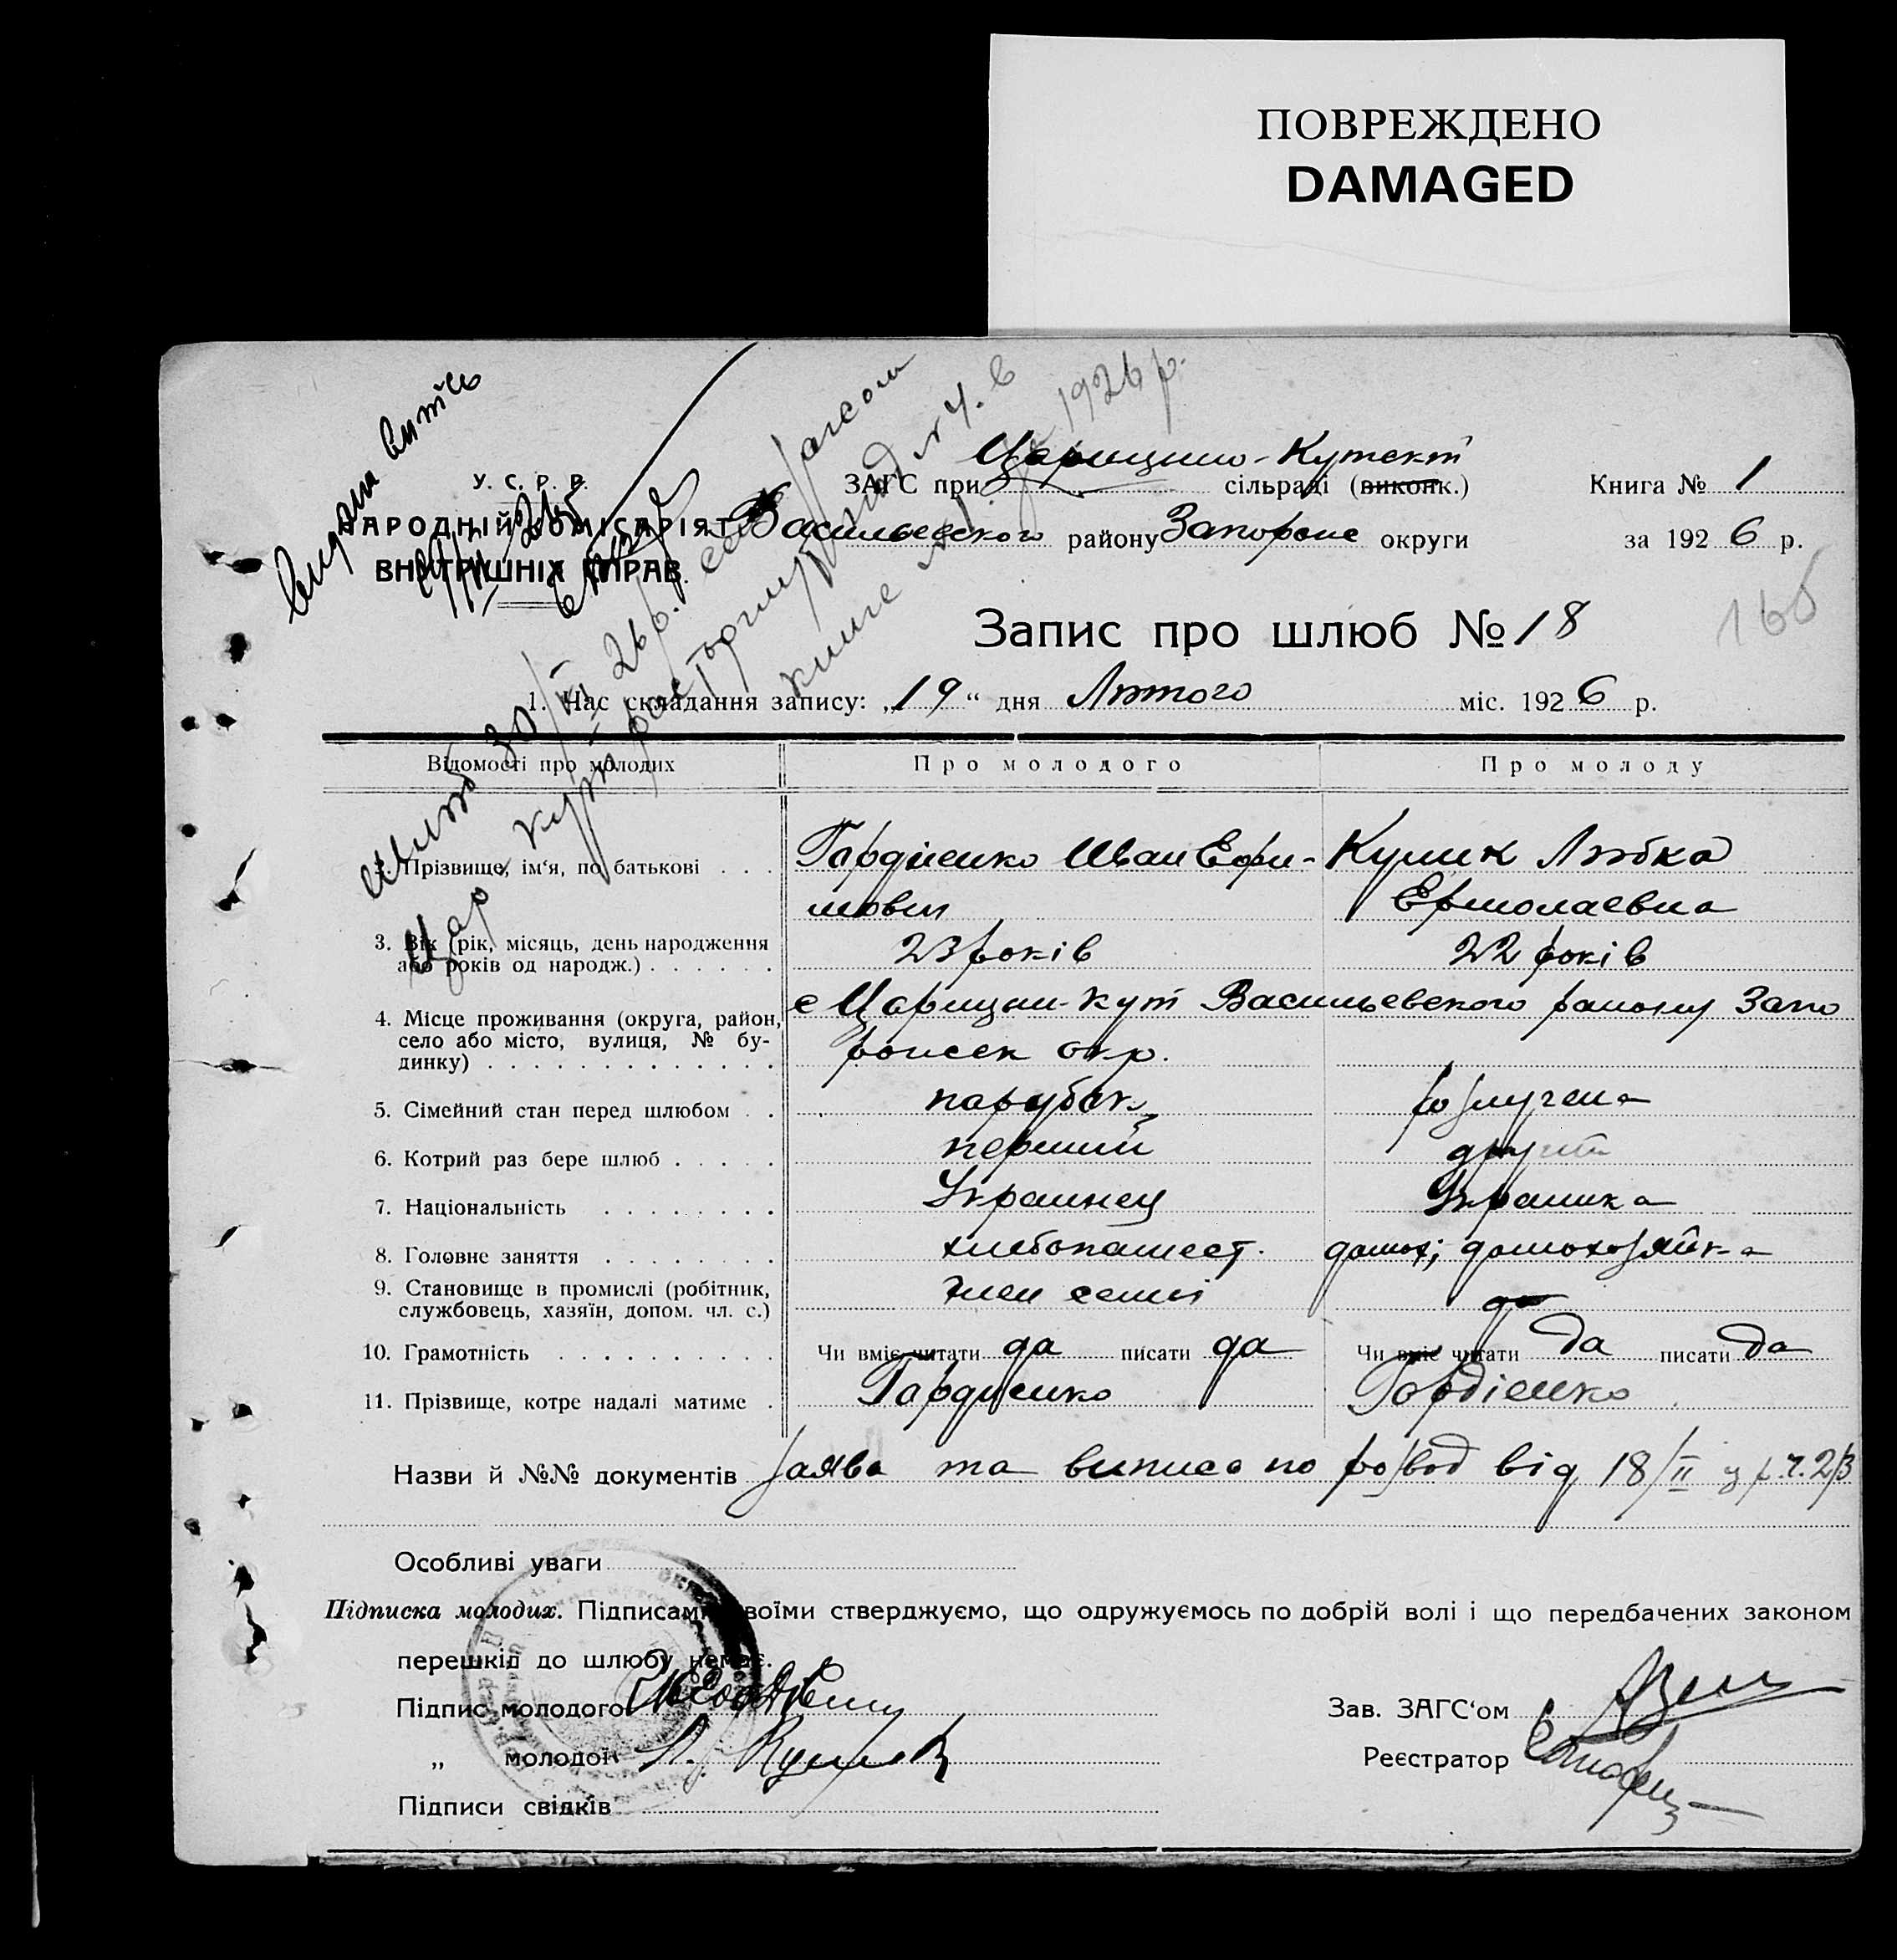 ПОВРЕЖДЕНО
DAMAGED
Видан витяг
У. С. Р. Р.
НАРОДНІЙ КОМІСАРІЯТ
ВНУТРІШНІХ СПРАВ.
ЗАГС при Царицино-Кутскт сільраді (виконк.)
Васильевского району Запорож округи
Книга № 1
за 1926 р.
Запис про шлюб № 18
166
1. Час складання запису: „19“ дня Лютого міс. 1926 р.
шлюб 30/VI 26 р. сель загсом
Цар Кут расторгнут під № 4. в
книге № 1 1926 р.
Відомості про молодих
Про молодого
Про молоду
2. Прізвище, ім'я, по батькові . . .
Гордіенко Иван Ефи-
мович
Кулик Любка
Ермолаевна
3. Вік (рік, місяць, день народження
або років од народж.) . . . . . .
23 років
22 років
4. Місце проживання (округа, район,
село або місто, вулиця, № бу-
динку) . . . . . . . . . . . . .
с Царицын-Кут Васильевского району Запо
рожск окр.
5. Сімейний стан перед шлюбом . .
парубок
розлучена
6. Котрий раз бере шлюб . . . . .
первий
другий
7. Національність . . . . . . . .
Украинец
Украинка
8. Головне заняття . . . . . . . .
хлебопашест.
домох; домохозяйка
9. Становище в промислі (робітник,
службовець, хазяїн, допом. чл. с.)
член семьі
10. Грамотність . . . . . . . . . .
Чи вміє читати да писати да
Чи вміє читати да писати да
11. Прізвище, котре надалі матиме .
Гордиенко
Гордіенко
Назви й №№ документів заява та виписа по розвод від 18/II
Особливі уваги
Підписка молодих. Підписами своїми стверджуємо, що одружуємось по добрій волі і що передбачених законом
перешкід до шлюбу немає.
Підпис молодого
Зав. ЗАГС'ом
„ молодої Л. Кулик
Реєстратор
Підписи свідків